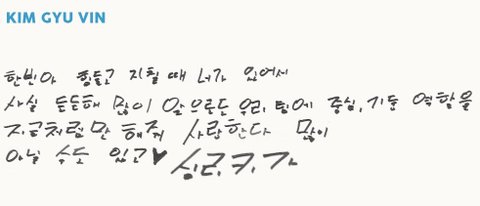 KIM GYU VIN
한빈아 힘들고 지칠 때 너가 있어서
사실 든든해 많이 앞으론도 우리 팀에 중심, 기둥 역할을
지금처럼만 해줘 사랑한다 많이
아닐 수도 있고♥